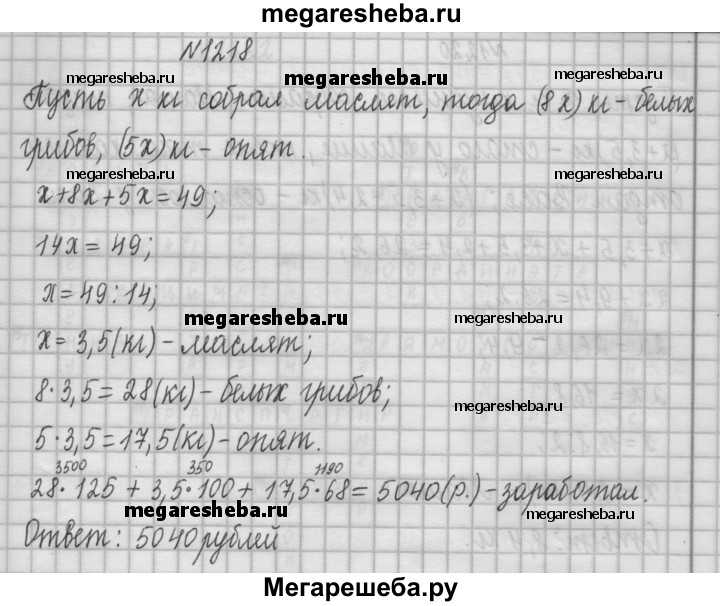 megaresheba.ru
№1218
megaresheba.ru megaresheba.ru megaresheba.ru
Пусть x кг собрал маслят, тогда (8x) кг – белых
грибов, (5x) кг – опят.
megaresheba.ru
x+8x+5x=49;
14x=49;
x=49:14;
megaresheba.ru megaresheba.ru
x=3,5(кг) – маслят;
8·3,5=28(кг) – белых грибов;
megaresheba.ru
5·3,5=17,5(кг) – опят.
3500 350 1190
28·125 + 3,5·100 + 17,5·68 = 5040(р.) – заработал.
megaresheba.ru
Ответ: 5040 рублей
Мегарешеба.ру